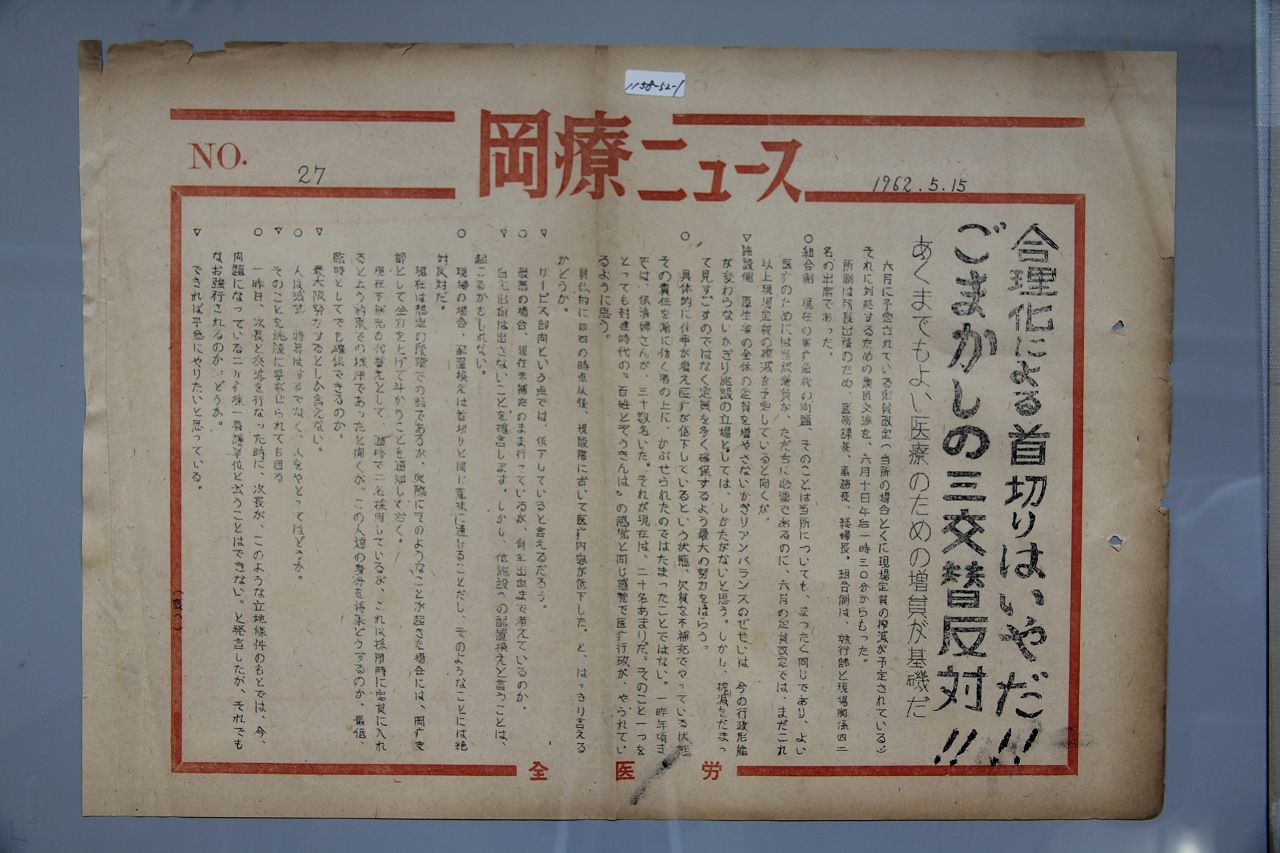 1158-52-1
岡療ニュース
NO. 27
1962.5.15
合理化による首切りはいやだ!!
ごまかしの三交替反対!!
あくまでもよい医療のための増員が基礎だ
六月に予定されている定員改定(当所の場合とくに現場定員の
それに対処するための集団交渉を、六月十日午后一時三〇分からもった。
所側は所長出張のため、医務課長、事務長、総婦長。組合側は、執行部と現場関係四二
名の出席であった。
○組合側 現在の 問題、そのことは当所についても、まったく同じであり、よい
医療のためには当然増員が、ただちに必要であるのに、六月の定員改定では、まだこれ
以上現場定員の を予定していると聞くが。
▽施設側 厚生省の全体の定員を増やさないかぎりアンバランスのぜせいは、今の行政形態
が変わらないかぎり施設の立場としては、しかたがないと思う。しかし、 だまっ
て見すごすのではなく定員を多く確保するよう最大の努力をはらう。
○ 具体的に仕事が増え医療が低下しているという状態、欠員を不補充でやっている状態
その責任を常に働く者の上に、かぶせられたのではたまったことではない。一昨年頃ま
では、保清婦さんが、三十数名いた。それが現在は、二十名あまりだ。そのこと一つを
とっても封建時代の“百姓とぞうきんは”の感覚と同じ感覚で医療行政が、やられてい
るように思う。
具体的に四四の時点以後、現段階において医療内容が低下した。と、はっきり言える
かどうか。
▽ サービス部面という点では、低下していると言えるだろう。
○ 最悪の場合、現在未補充のまま行っているが、 出血まで考えているのか。
▽ 自主出血は出さないことを確言します。しかし、他施設への配置換えと言うことは、
起こるかもしれない。
○ 現場の場合、配置換えは首切りと同じ意味に通じることだし、そのようなことには絶
対反対だ。
現在は想定の段階での話であるが、実際にそのようなことが起きた場合には、岡療支
部として全力を上げて斗かうことを通知しておく。
現在下補充の代替えとして、臨時で二名採用しているが、これは採用時に定員に入れ
ると云う約束での採用であったと聞くが、この人達の身分を将来どうするのか、最低、
臨時としてでも確保できるのか。
▽ 最大限努力するとしか言えない。
○ 人は減す、特昇はするでなく、人をやとってはどうか。
▽ そのことを施設に要求せられても困る
○ 一昨日、次長と交渉を行なった時に、次長が、このような立地条件のもとでは、今、
問題になっている二ヶ病棟一看護単位と云うことはできない。と発言したが、それでも
なお強行されるのかどうか。
▽ できれば早急にやりたいと思っている。
(裏へ)
全医労